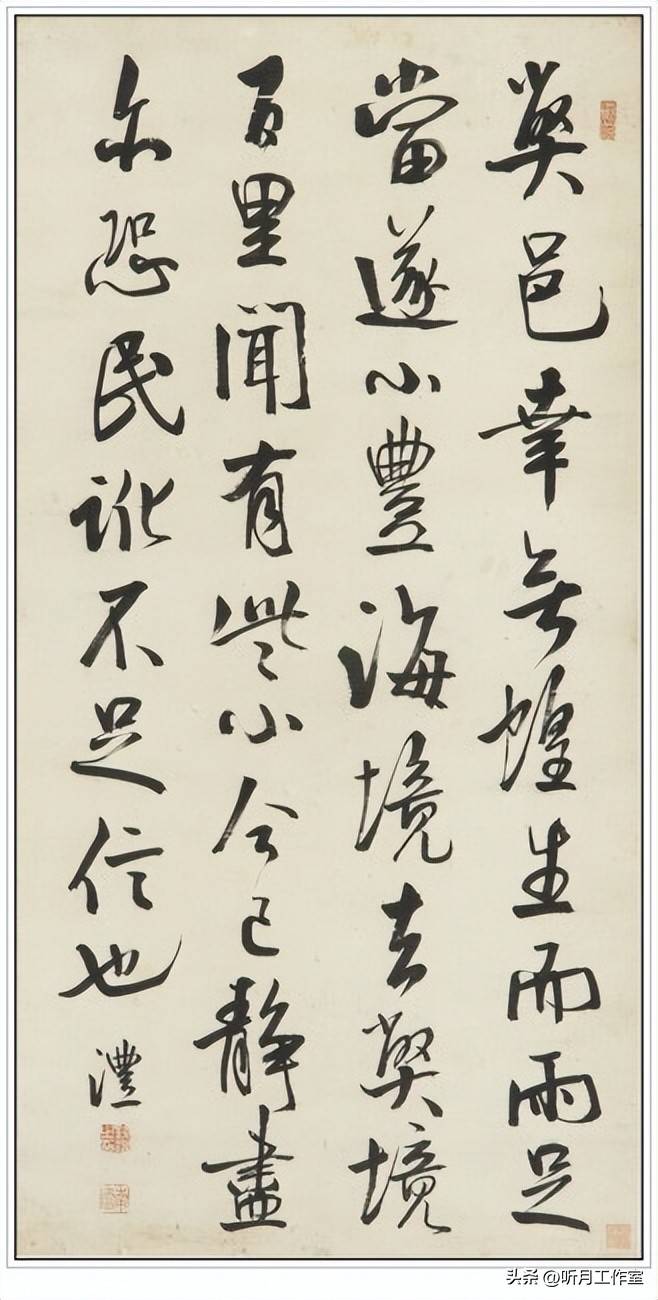 弊邑幸無蝗生而雨足
當遂小豐海境去弊境
百里聞有些小今已靜盡
尔恐民訛不足信也
澧
头条 @听月工作室